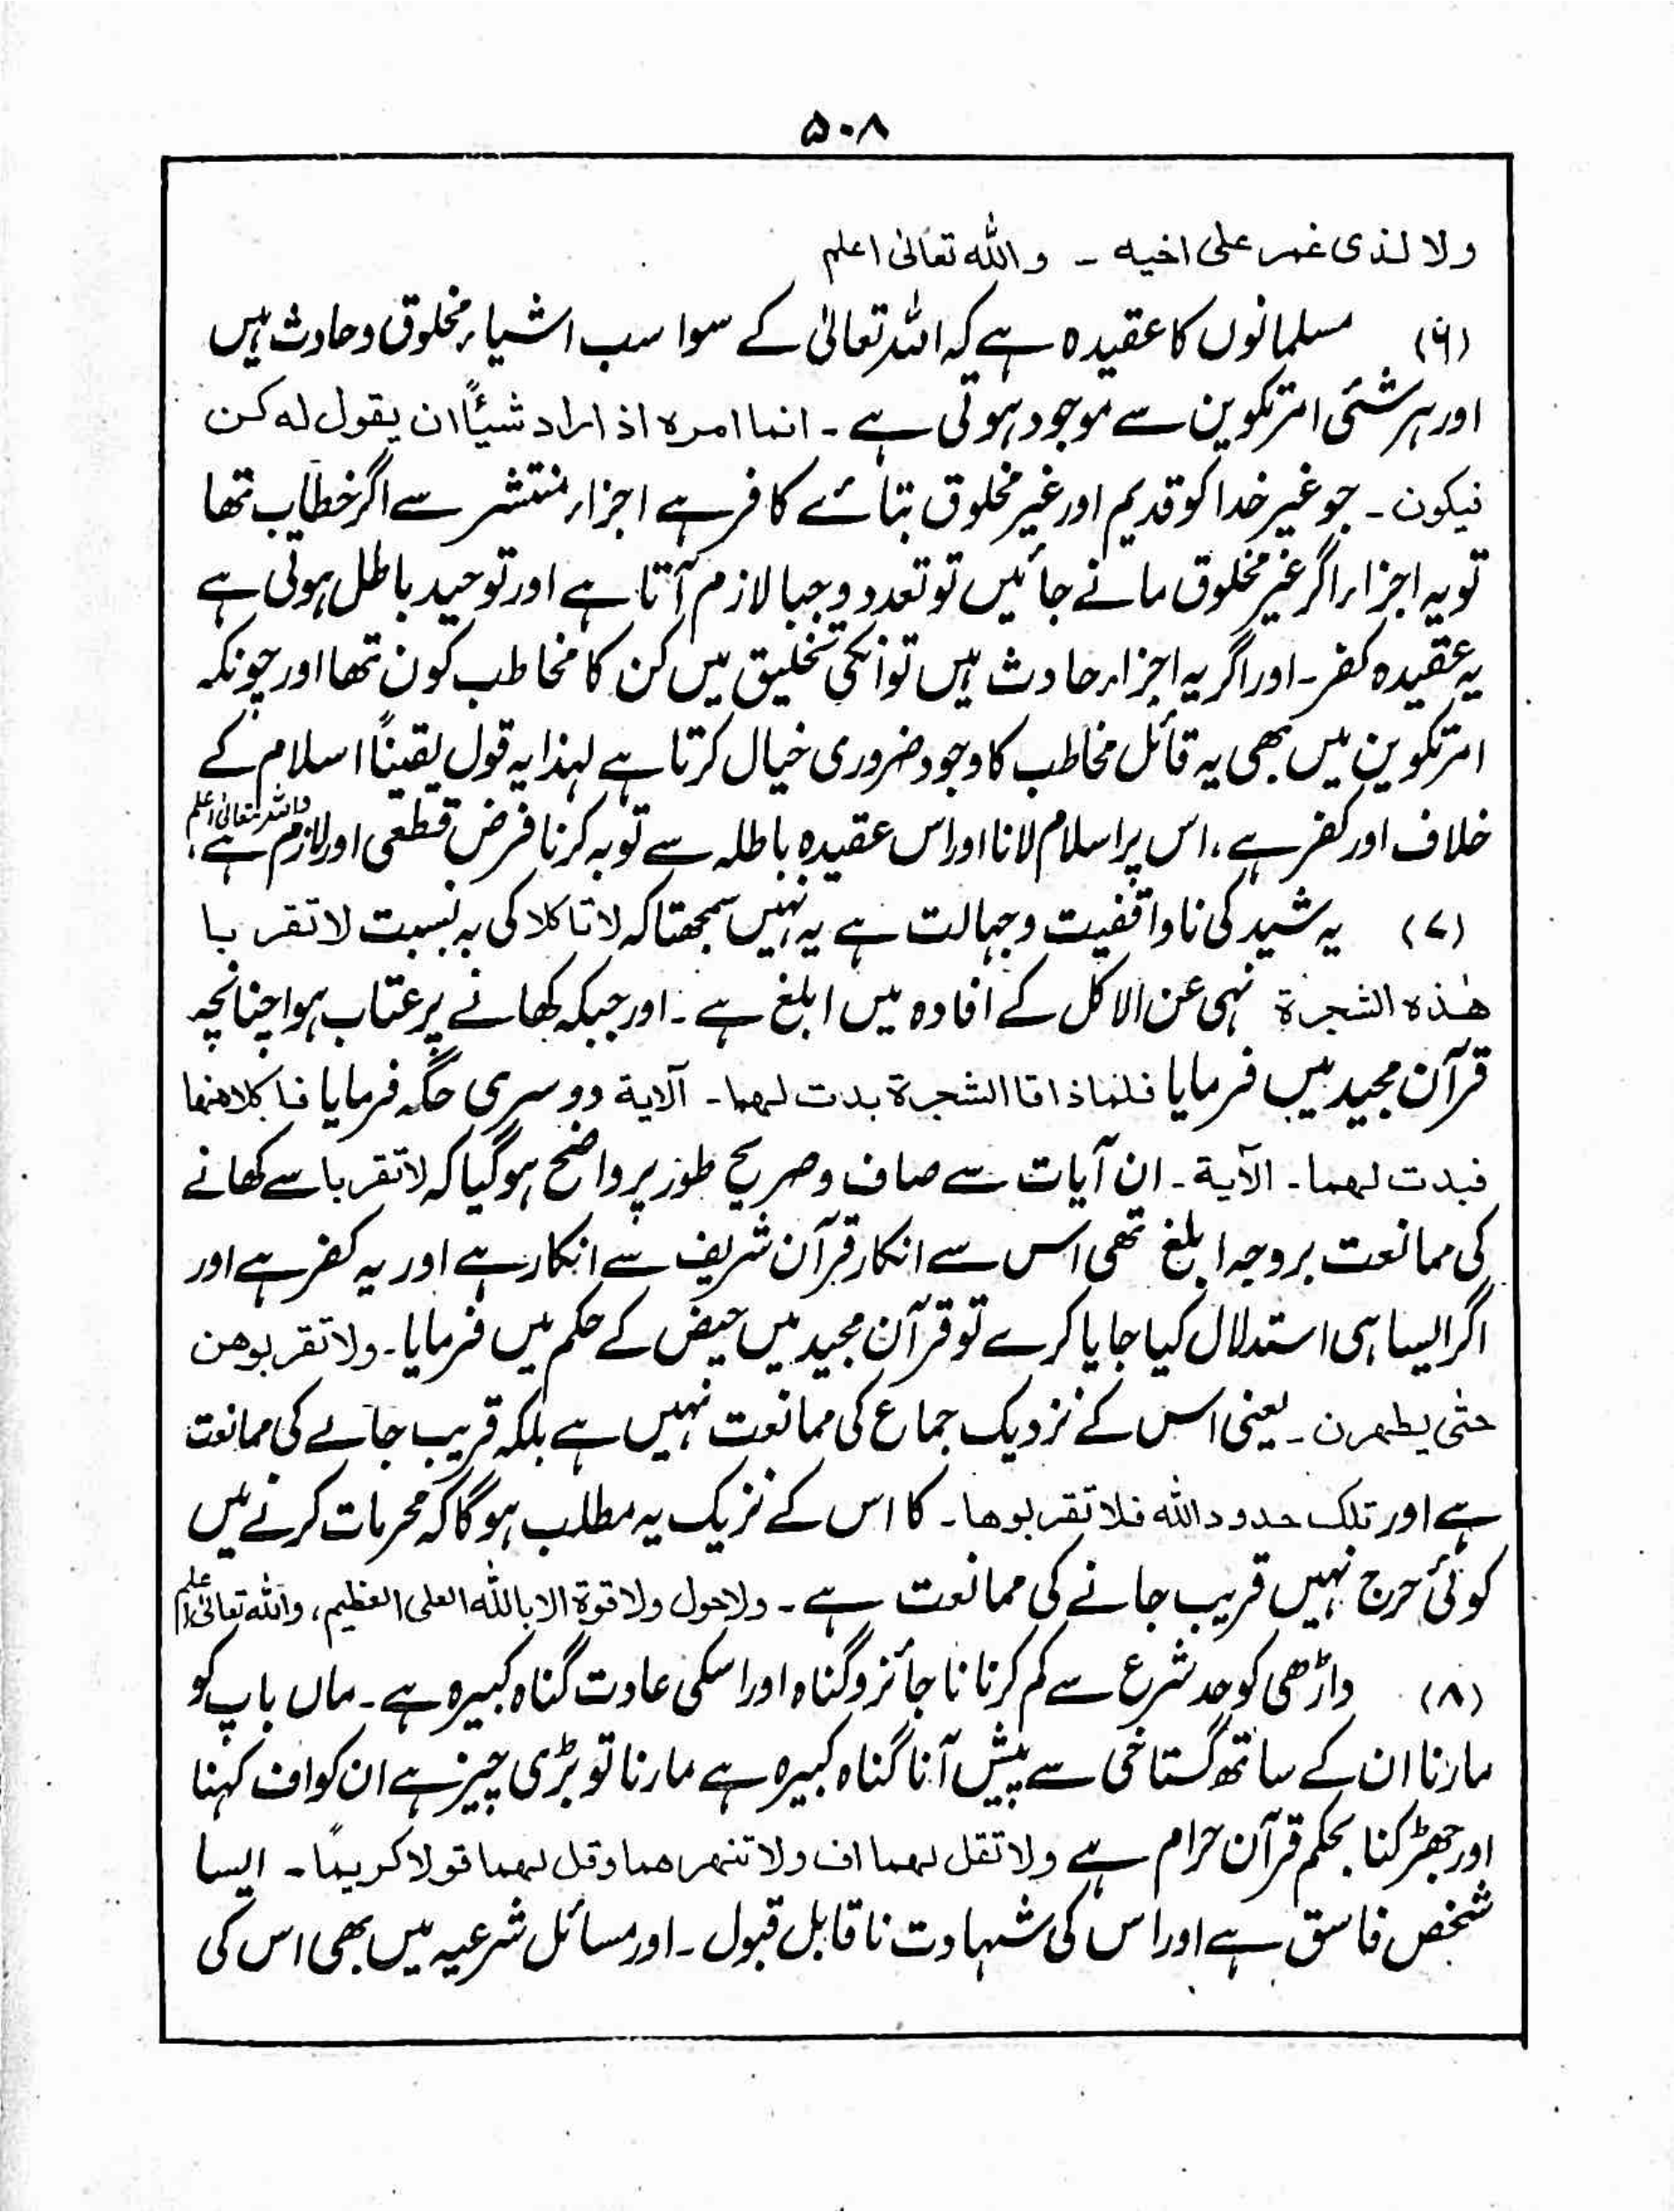 ۵۰۸
ولا لذی غمر علی اخیہ ـ واللہ تعالیٰ اعلم
(۶) مسلمانوں کا عقیدہ ہے کہ اللہ تعالیٰ کے سوا سب اشیاء مخلوق و حادث ہیں
اور ہر شئی امر تکوین سے موجود ہوتی ہے ۔ انما امرہ اذا اراد شیئًا ان یقول لہ کن
فیکون ۔ جو غیر خدا کو قدیم اور غیر مخلوق بتائے کافر ہے اجزاء منتشر سے اگر خطاب تھا
تو یہ اجزاء اگر غیر مخلوق مانے جائیں تو تعدد وجبا لازم آتا ہے اور توحید باطل ہوتی ہے
یہ عقیدہ کفر ۔ اور اگر یہ اجزاء حادث ہیں تو انکی تخلیق میں کن کا مخاطب کون تھا اور چونکہ
امر تکوین میں بھی یہ قائل مخاطب کا وجود ضروری خیال کرتا ہے لہذا یہ قول یقیناً اسلام کے
خلاف اور کفر ہے ، اس پر اسلام لانا اور اس عقیدہ باطلہ سے توبہ کرنا فرض قطعی اور لازم ہے ، واللہ تعالیٰ اعلم
(۷) یہ شید کی ناواقفیت و جہالت ہے یہ نہیں سمجھتا کہ لاتاکلا کی بہ نسبت لاتقربا
ھٰذہ الشجرۃ نہی عن الاکل کے افادہ میں ابلغ ہے ۔ اور جبکہ کھانے پر عتاب ہوا چنانچہ
قرآن مجید میں فرمایا فلماذاقا الشجرۃ بدت لہما ۔ آلایۃ دوسری جگہ فرمایا فاکلا منہا
فبدت لہما ۔ الآیۃ ۔ ان آیات سے صاف و صریح طور پر واضح ہوگیا کہ لاتقربا سے کھانے
کی ممانعت بروجہ ابلغ تھی اس سے انکار قرآن شریف سے انکار ہے اور یہ کفر ہے اور
اگر ایسا ہی استدلال کیا جایا کرے تو قرآن مجید میں حیض کے حکم میں فرمایا ۔ ولا تقربوھن
حتی یطہرن ۔ یعنی اس کے نزدیک جماع کی ممانعت نہیں ہے بلکہ قریب جانے کی ممانعت
ہے اور تلک حدود اللہ فلا تقربوھا ۔ کا اس کے نزیک یہ مطلب ہوگا کہ محرمات کرنے میں
کوئی حرج نہیں قریب جانے کی ممانعت ہے ۔ ولاحول ولا قوۃ الا باللہ العلی العظیم ، واللہ تعالیٰ اعلم
(۸) داڑھی کو حد شرع سے کم کرنا ناجائز و گناہ اور اسکی عادت گناہ کبیرہ ہے ۔ ماں باپ کو
مارنا ان کے ساتھ گستاخی سے پیش آنا گناہ کبیرہ ہے مارنا تو بڑی چیز ہے ان کو اف کہنا
اور جھڑکنا بحکم قرآن حرام ہے ولا تقل لہما اف ولا تنہرھما وقل لہما قولا کریمًا ۔ ایسا
شخص فاسق ہے اور اس کی شہادت ناقابل قبول ۔ اور مسائل شرعیہ میں بھی اس کی